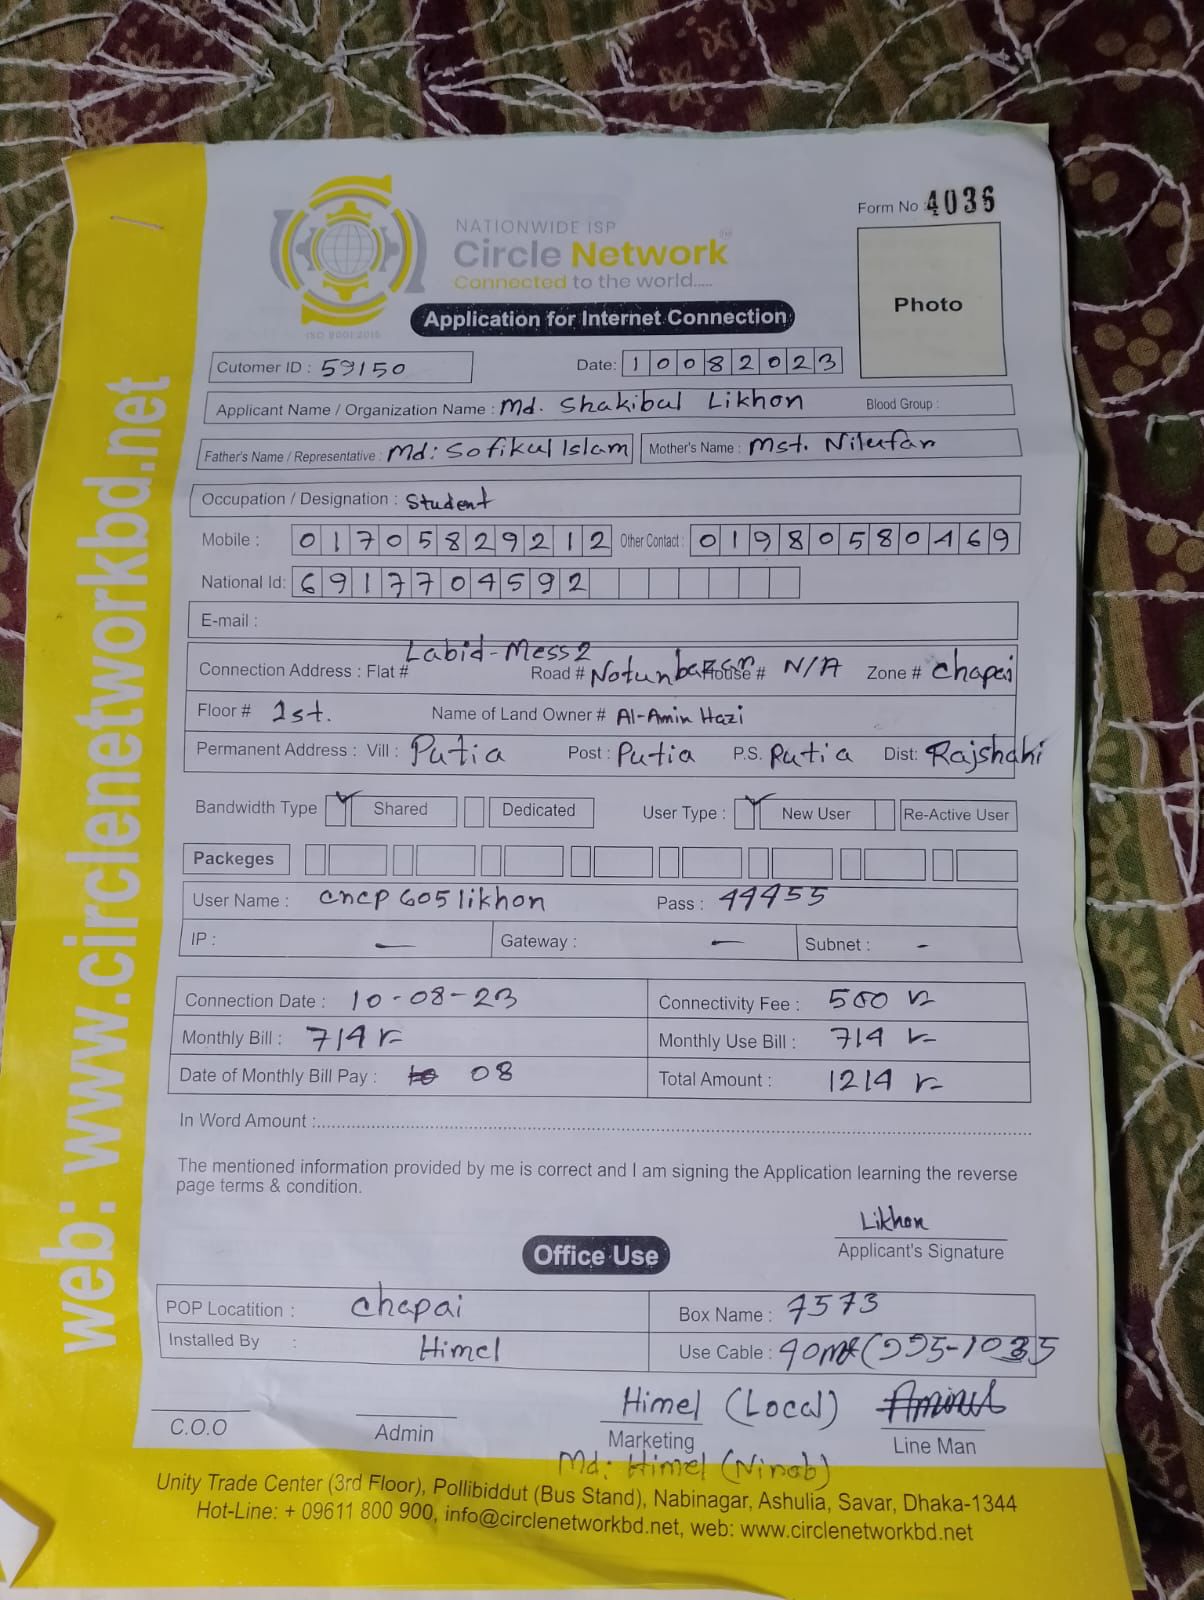 Form No 4036
NATIONWIDE ISP
Circle Network
Connected to the world.....
ISO 9001:2015
Photo
Application for Internet Connection
Cutomer ID : 59150 Date: 10082023
Applicant Name / Organization Name : Md. Shakibul Likhon Blood Group :
Father's Name / Representative : Md: Sofikul Islam Mother's Name : Mst. Nilufar
Occupation / Designation : Student
Mobile : 01705829212 Other Contact : 01980580469
National Id: 6917704592
E-mail :
Connection Address : Flat # Labid-Mess2 Road # Notunbazar House # N/A Zone # Chapai
Floor # 1st. Name of Land Owner # Al-Amin Hazi
Permanent Address : Vill : Putia Post : Putia P.S. Putia Dist: Rajshahi
Bandwidth Type Shared Dedicated User Type : New User Re-Active User
Packeges
User Name : cncp605likhon Pass : 44455
IP : — Gateway : — Subnet : -
Connection Date : 10-08-23 Connectivity Fee : 500
Monthly Bill : 714 Monthly Use Bill : 714
Date of Monthly Bill Pay : 08 Total Amount : 1214
In Word Amount :
The mentioned information provided by me is correct and I am signing the Application learning the reverse
page terms & condition.
Likhon
Applicant's Signature
Office Use
POP Locatition : Chapai Box Name : 7573
Installed By : Himel Use Cable :
Himel (Local)
C.O.O Admin Marketing Line Man
Md: Himel
Unity Trade Center (3rd Floor), Pollibiddut (Bus Stand), Nabinagar, Ashulia, Savar, Dhaka-1344
Hot-Line: + 09611 800 900, info@circlenetworkbd.net, web: www.circlenetworkbd.net
web: www.circlenetworkbd.net